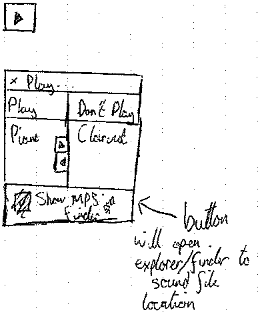 x Play...
Play Don't Play
Piano Clarinet
Show MP3 in
Finder
button
will open
explorer/finder to
sound file
location